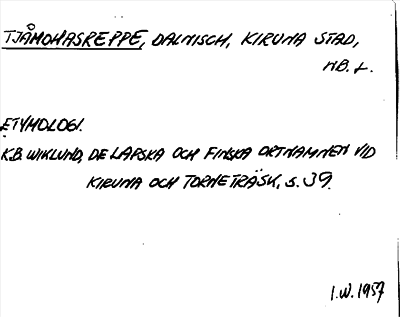 TJÅMOHASREPPE, DALNISCH, KIRUNA STAD,
NB. L.
ETYMOLOGI.
K.B. WIKLUND, DE LAPSKA OCH FINSKA ORTNAMNEN VID
KIRUNA OCH TORNETRÄSK, S. 39.
I.W. 1957